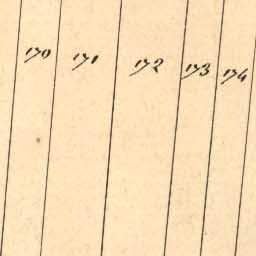 170 171 172 173 174